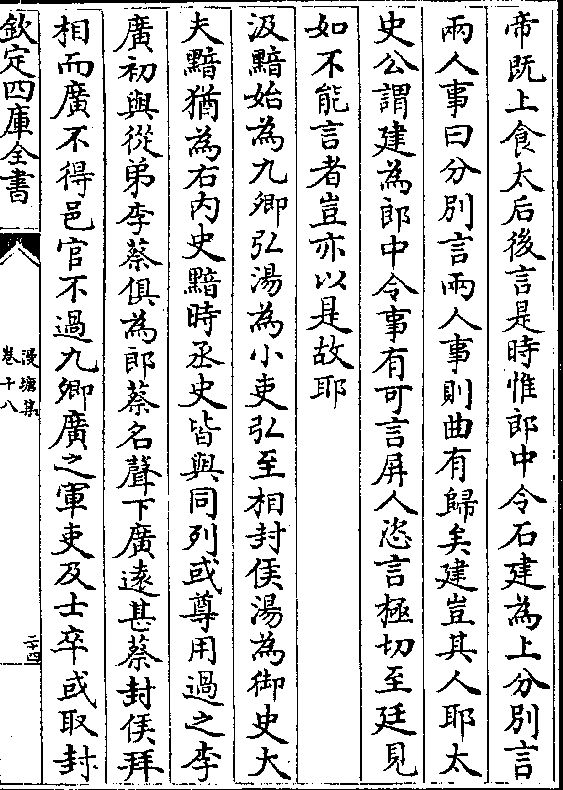 帝既上食太后後言是時惟郎中令石建為上分別言
兩人事曰分別言兩人事則曲有歸矣建豈其人耶太
史公謂建為郎中令事有可言屏人恣言極切至廷見
如不能言者豈亦以是故耶
汲黯始為九卿弘湯為小吏弘至相封侯湯為御史大
夫黯猶為右内史黯時丞史皆與同列或尊用過之李
廣初與從弟李蔡俱為郎蔡名聲下廣逺甚蔡封侯拜
相而廣不得邑官不過九卿廣之軍吏及士卒或取封
欽定四庫全書
漫塘集
卷十八
二十四